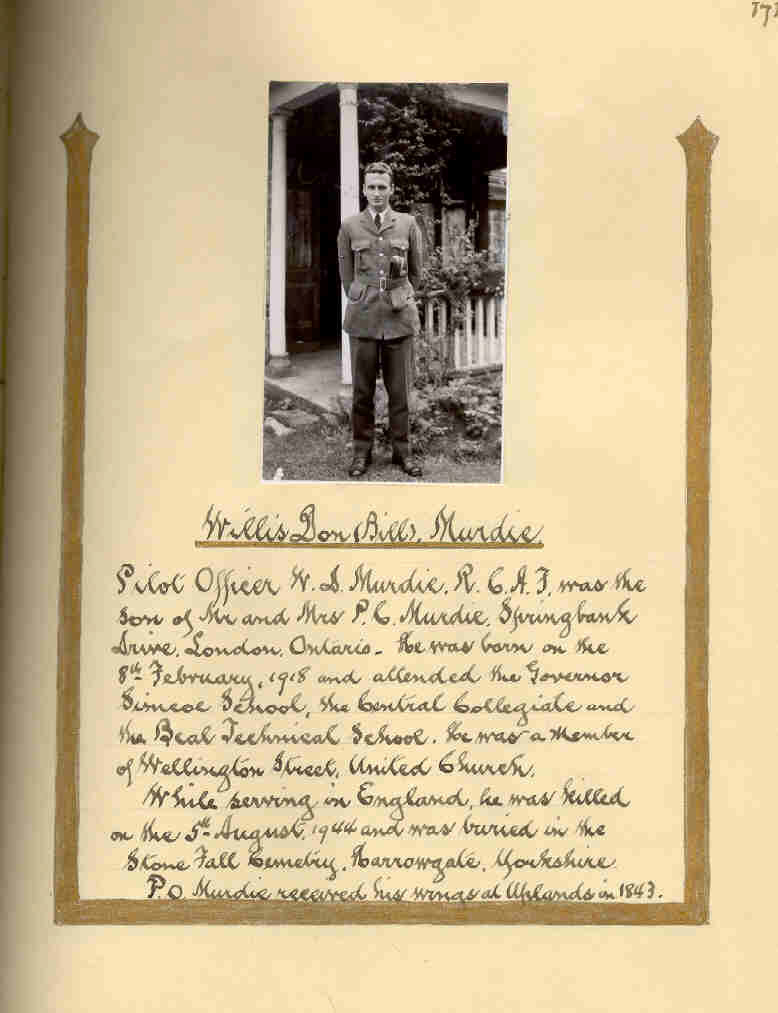 171
Willis Don (Bill), Murdie.
Pilot Officer W. D. Murdie. R. C. A. F, was the
son of Mr and Mrs P. C. Murdie. Springbank
Drive, London, Ontario - He was born on the
8th February, 1918 and attended the Governor
Simcoe School, the Central Collegiate and
the Beal Technical School. He was a member
of Wellington Street, United Church.
While serving in England, he was killed
on the 5th August, 1944 and was buried in the
Stone Fall Cemetry, Harrowgate, Yorkshire
P. O. Murdie received his wings at Uplands in 1843.